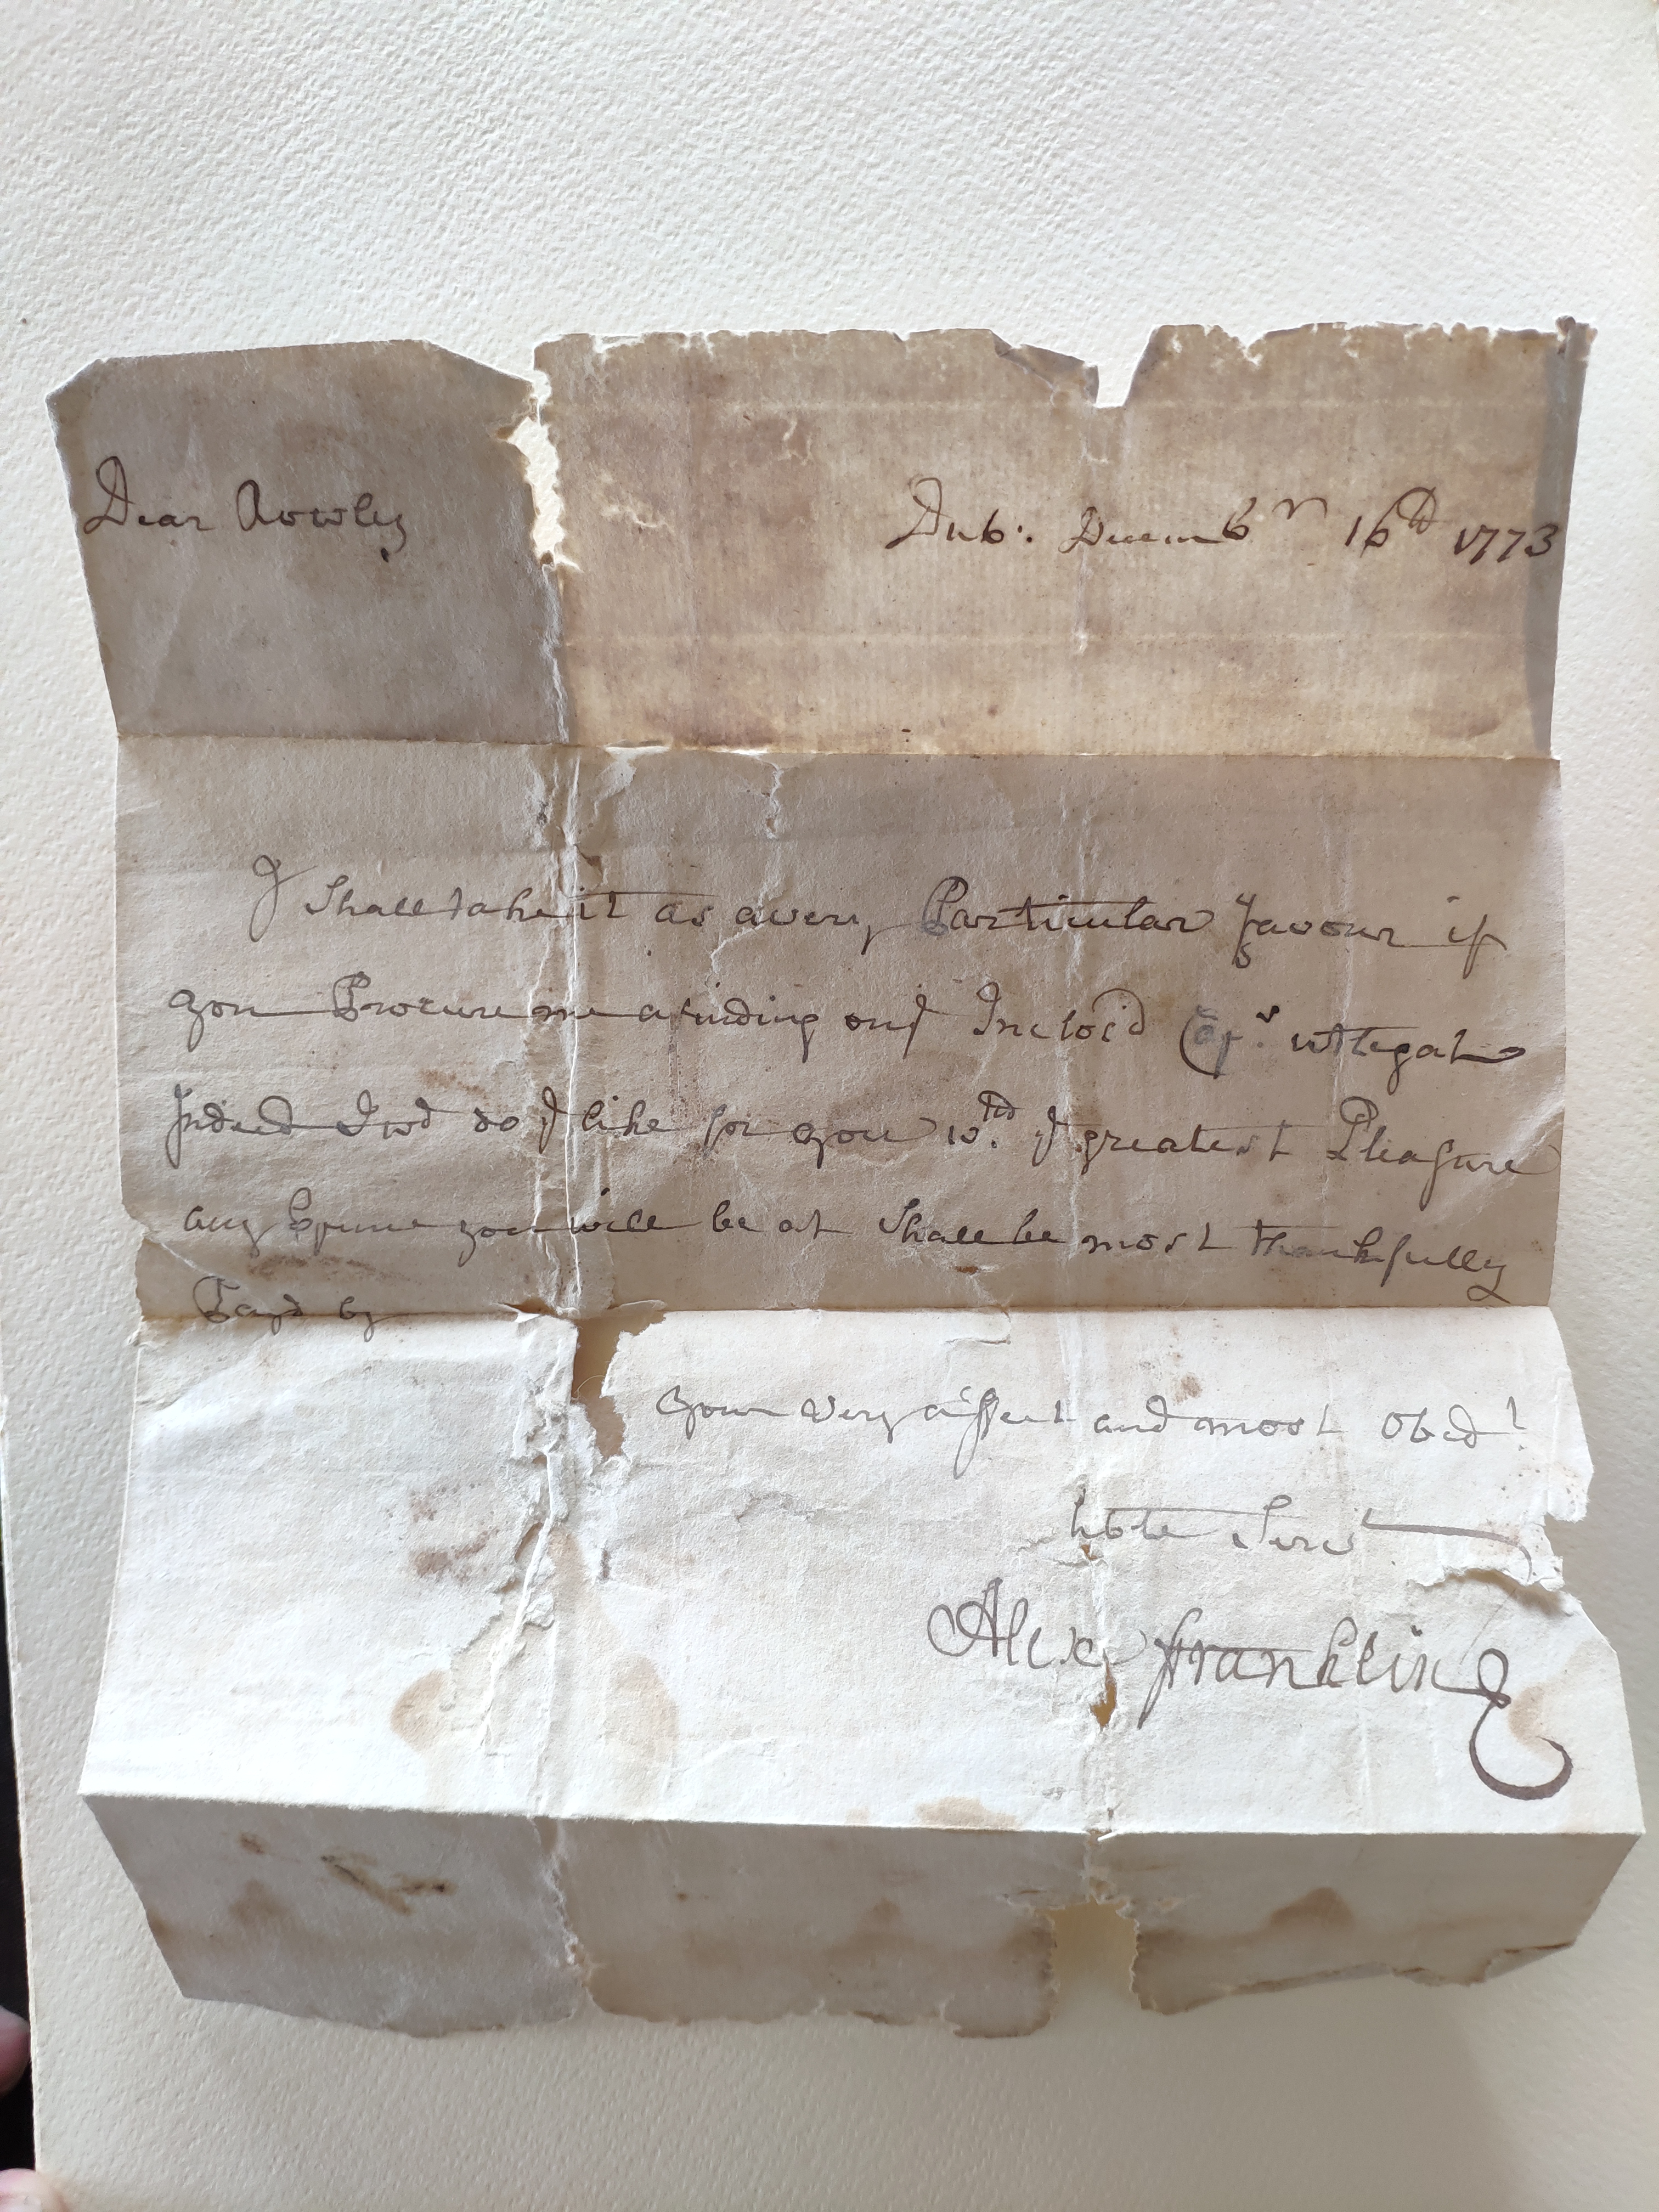 Dear Rowley
Dub: Decemb<sup>r</sup> 16<sup>th</sup> 1773
I Shall take it as a very Particular favour if
you Procure me a finding on y Inclos'd
Indeed I wd do y like for you w<sup>th</sup> y greatest Pleasure
any Expence you will be at Shall be most thankfully
Pay'd by
your very affect and most Obed<sup>t</sup>
hble Serv<sup>t</sup>
Alex Franklin